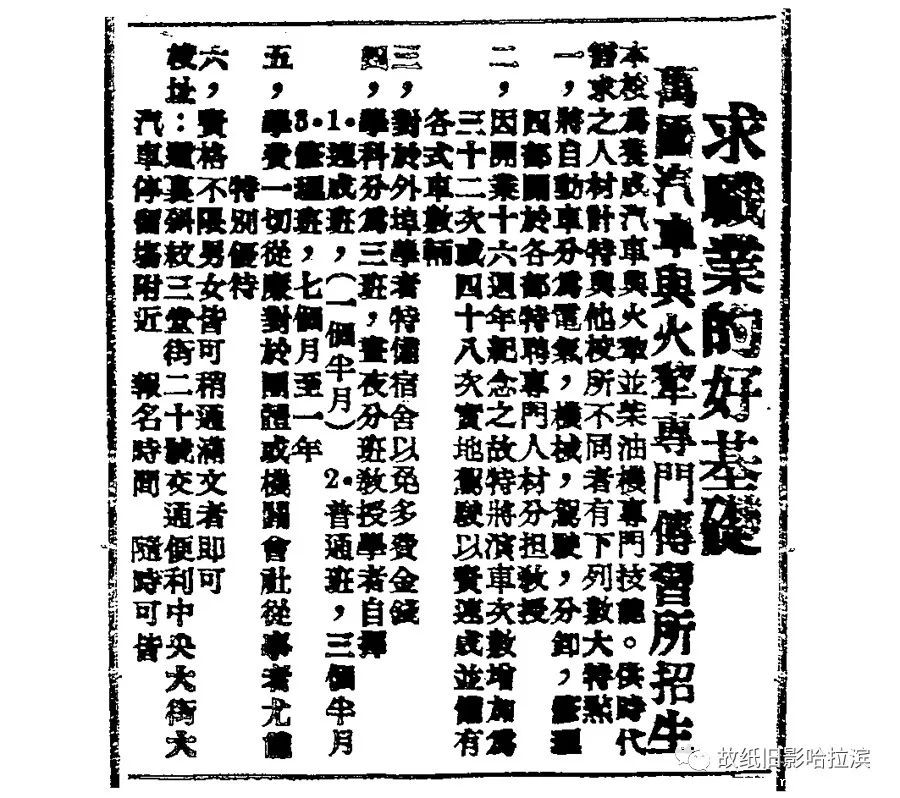 求職業的好基礎
萬國汽車與火犂專門傳習所招生
本校爲養成汽車與火犂並柴油機專門技能。供時代
需求之人材計特與他校所不同者有下列數大特點
一，將自動車分爲電氣，機械，駕駛，分卸，修理
四部關於各部特聘專門人材分担敎授
二，因開業十六週年紀念之故特將演車次數增加爲
三十二次或四十八次實地駕駛以資速成並備有
各式車數輛
三，對於外埠學者特備宿舍以免多費金錢
四，學科分爲三班，晝夜分班敎授學者自擇
1．速成班，（一個半月） 2．普通班，三個半月
3．理班，七個月至一年
五，學費一切從廉對於團體或機關會社從事者尤備
特別優待
六，資格不限男女皆可稍通滿文者即可
校址：道裏斜紋三堂街二十號交通便利中央大街大
汽車停留塲附近 報名時間 隨時可皆
故纸旧影哈拉滨